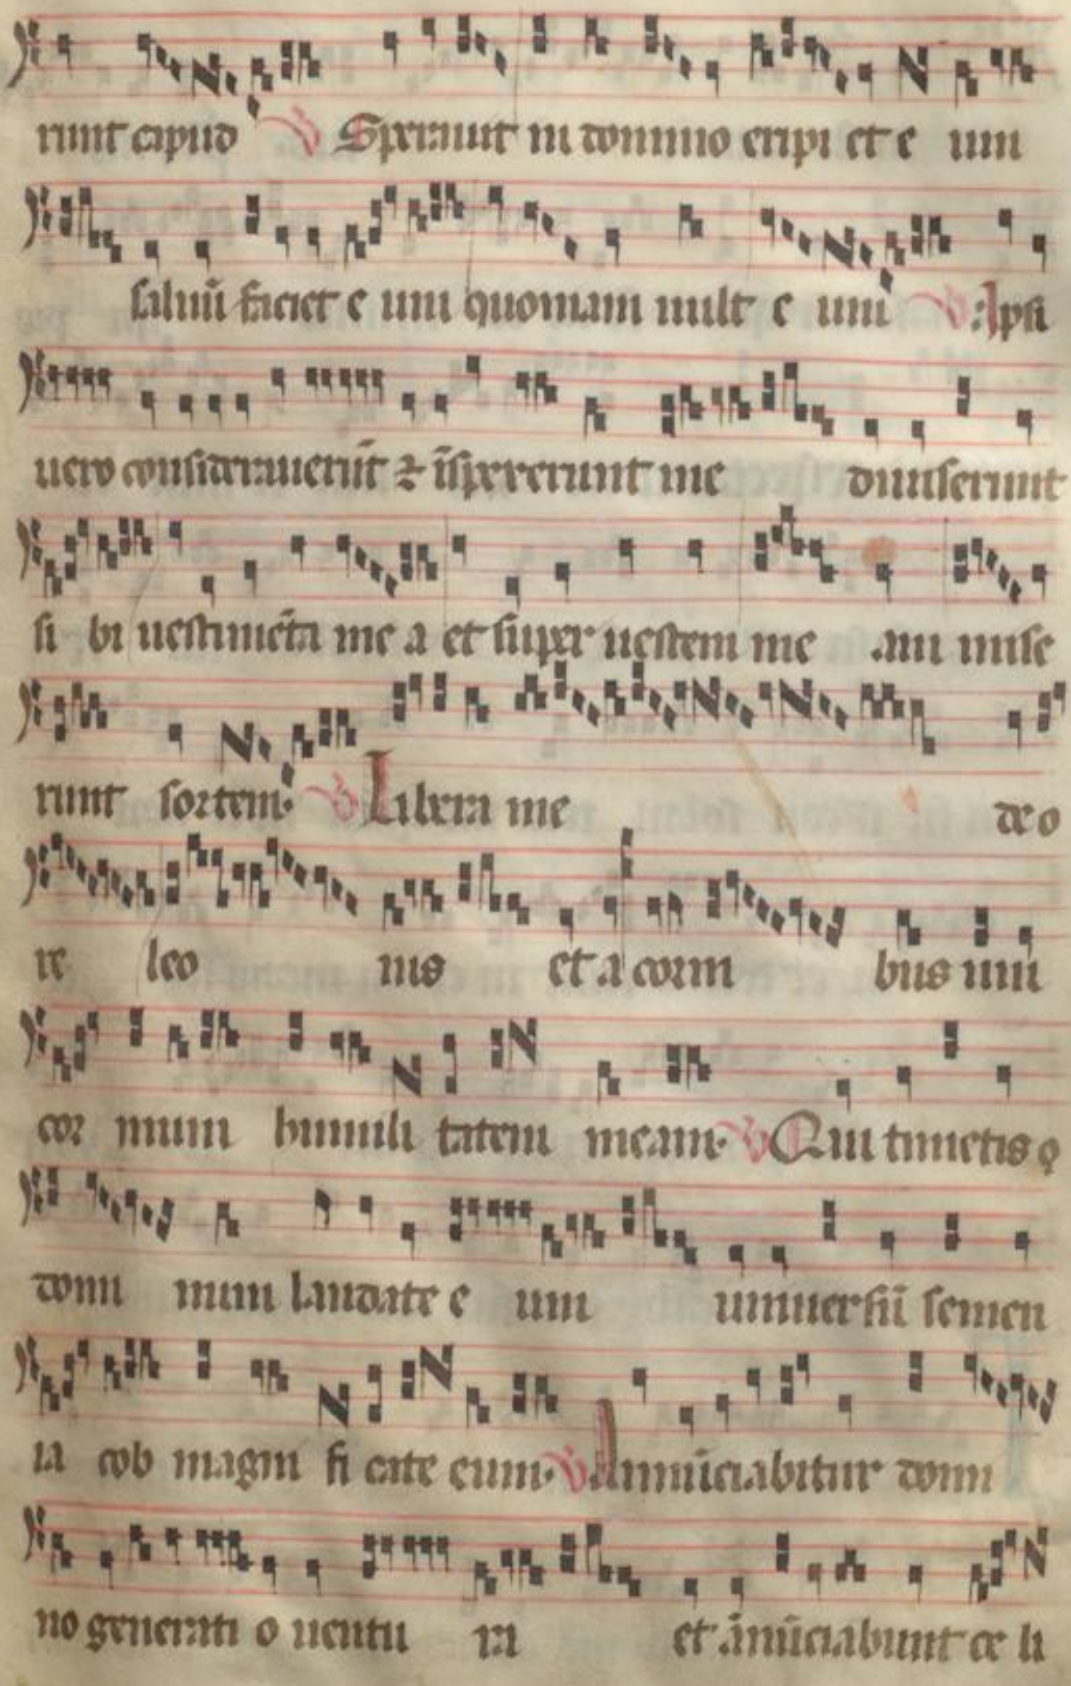 runt capud ℣ Speravit in domino eripi at e um
saluū faciet e um quoniam uult e um ℣ Ipsi
uero considerauerūt ⁊ īspexerunt me diuiserunt
si bi uestimēta me a et super uestem me .am mise
runt sortem· ℣ Libera me de o
re leo nis et a corni bus uni
cor nium humili tatem meam· ℣ Qui timetis
domi num laudate e um uniuersū semen
ia cob magni fi cate eum· ℣ Annūciabitur domi
no generati o uentu ra et ānūciabunt ce li